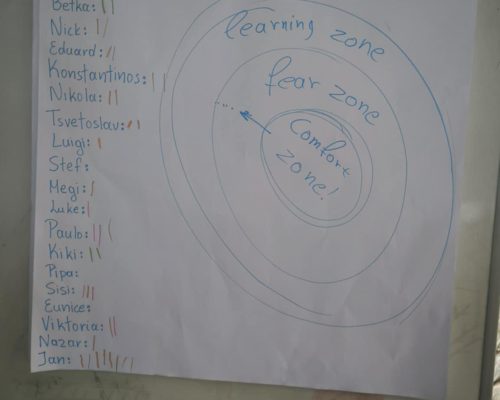 Betka: ||
Nick: ||
Eduard: ||
Konstantinos: ||
Nikola: ||
Tsvetoslav: ||
Luigi: |
Stef:
Megi: |
Luke: |
Paulo: |||
Kiki: ||
Pipa:
Sisi: |||
Eunice:
Viktoria: ||
Nazar: |
Jan: |||||||
learning zone
fear zone
Comfort
zone!